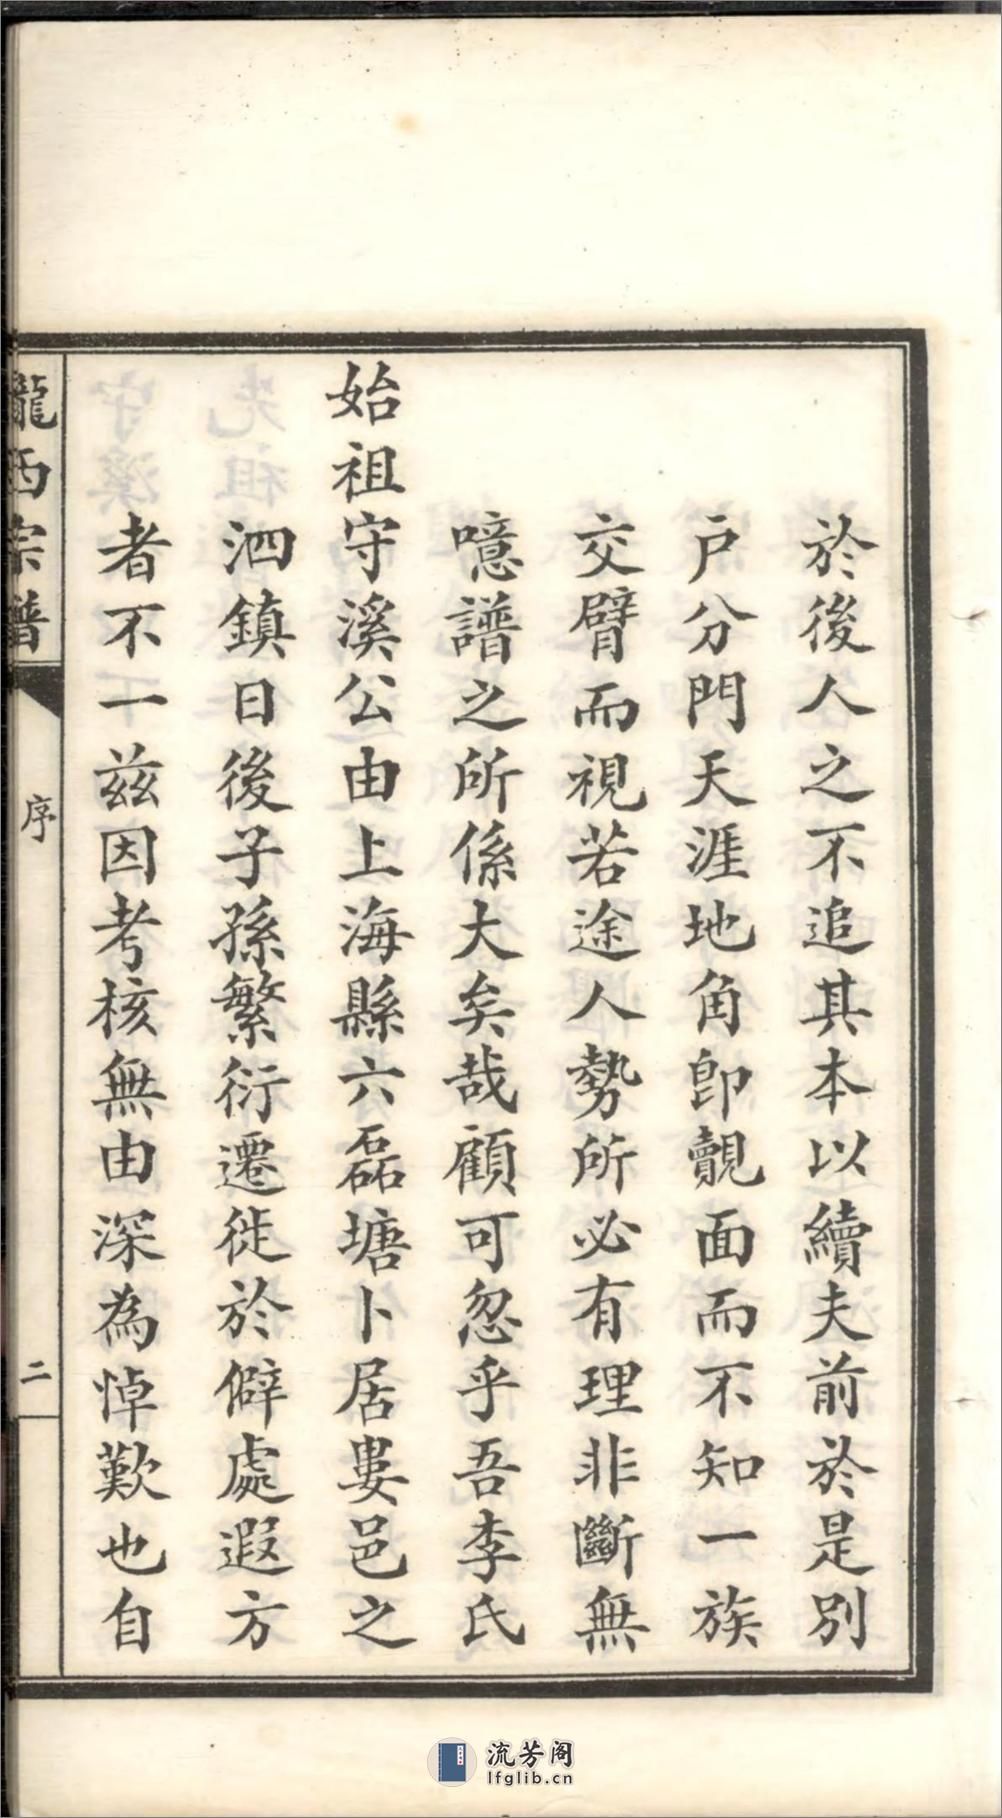 於後人之不追其本以續夫前於是別
戶分門天涯地角卽覿面而不知一族
交臂而視若途人勢所必有理非斷無
噫譜之所係大矣哉顧可忽乎吾李氏
始祖守溪公由上海縣六磊塘卜居婁邑之
泗鎮日後子孫繁衍遷徙於僻處遐方
者不一茲因考核無由深為悼歎也自
隴西宗譜
序
二
流芳阁
lfglib.cn